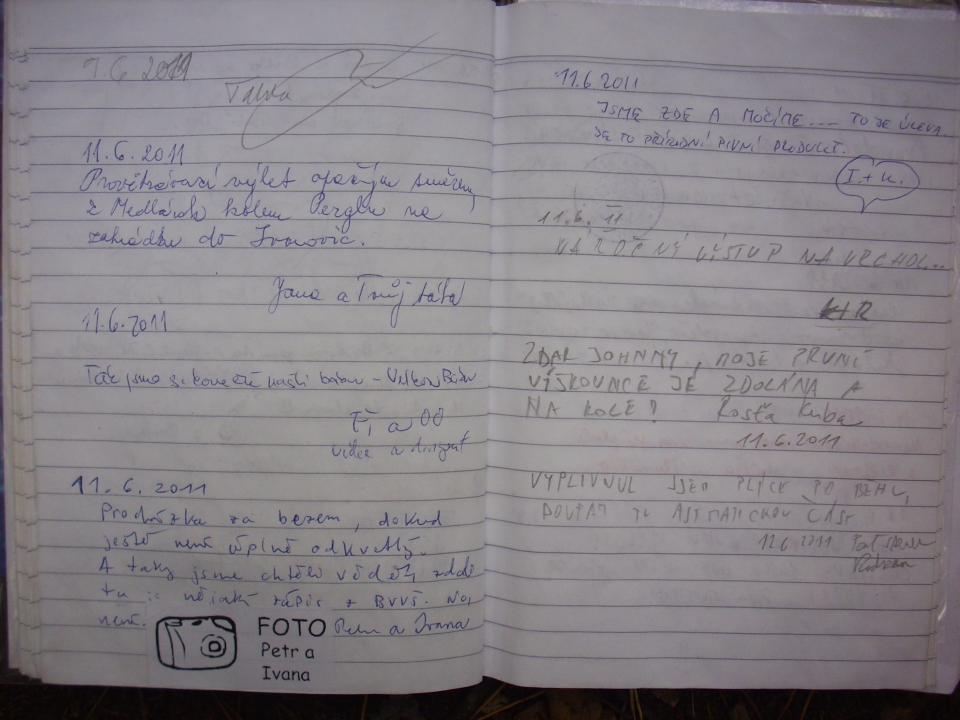 7.6 2011
11.6.2011
Provětrávací výlet opačným směrem,
z Medlánek kolem Perglu na
zahrádku do Ivanovic.
Jana a Tvůj táta
11.6.2011
Tak jsme
11. 6. 2011
Procházka za bezem, dokud
ještě není úplně odkvetlý.
A taky jsme chtěli vědět, zda
tu je nějaký zápis z BVVŠ. No,
není. Petr a Ivana
FOTO
Petr a
Ivana
11.6 2011
JSME ZDE A MOČÍME.... TO JE ÚLEVA
JE TO PŘÍRODNÍ PIVNÍ PRODUKT.
I.+K.
11.6. 11
NÁROČNÝ VÝSTUP NA VRCHOL...
K+R
ZDAR JOHNNY, MOJE PRVNÍ
VÝŠKOVNICE JE ZDOLÁNA A
NA KOLE! Rosťa Kuba
11.6.2011
VYPLIVNUL JSEM PLÍCE PO BĚHU,
ASTMATICKOU ČÁST
12.6 2011